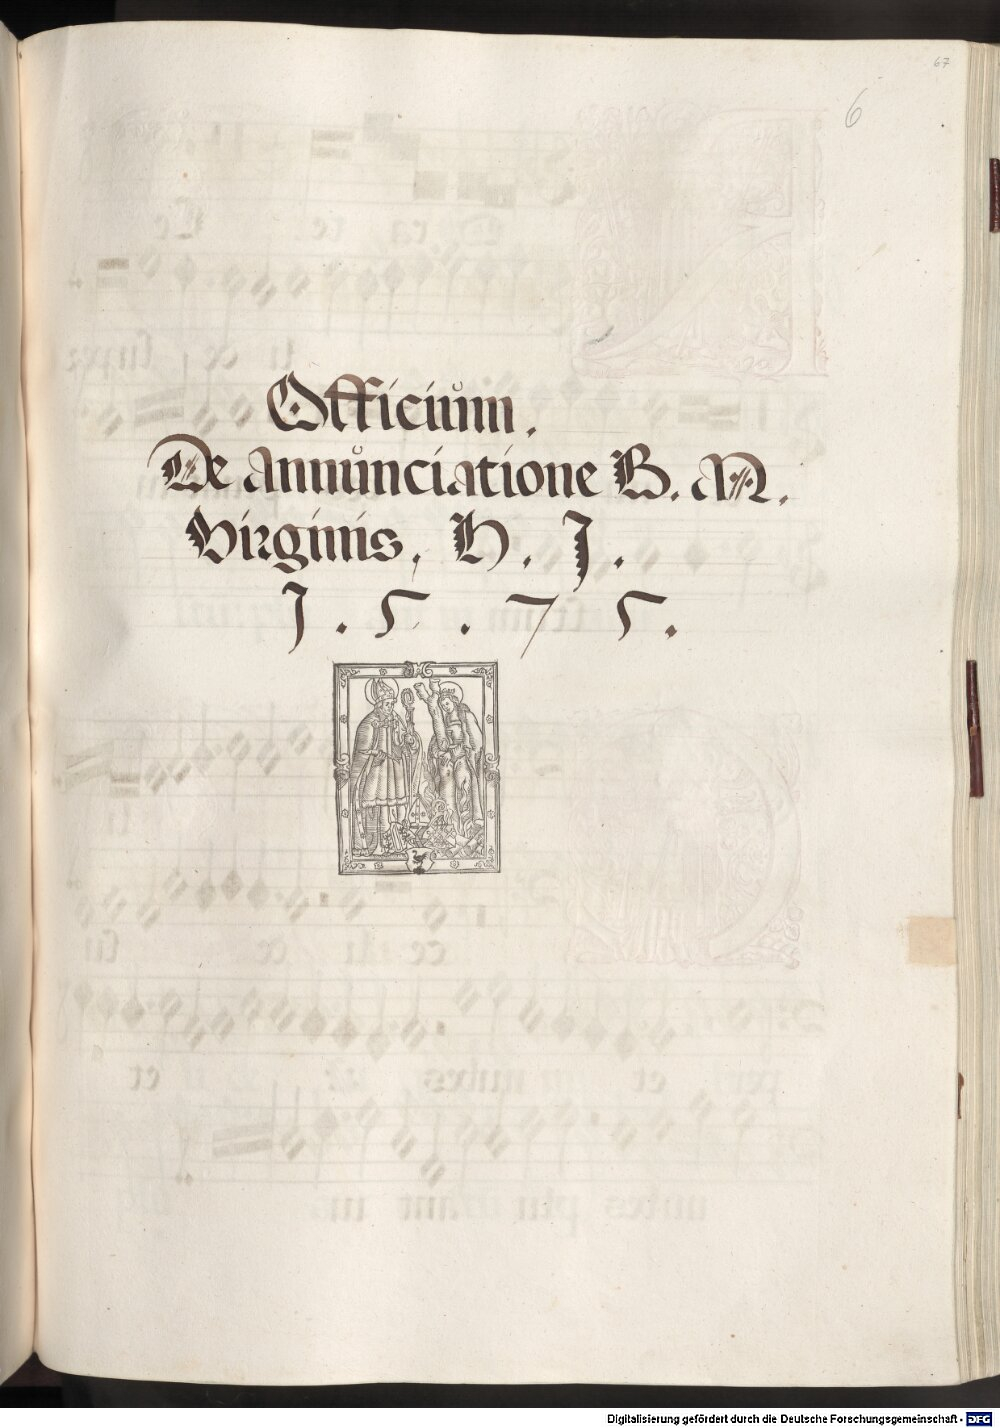 67
6
Officiům.
De Annůnciatione B. M.
Virginis, H. J.
1.5.75.
Digitalisierung gefördert durch die Deutsche Forschungsgemeinschaft - DFG